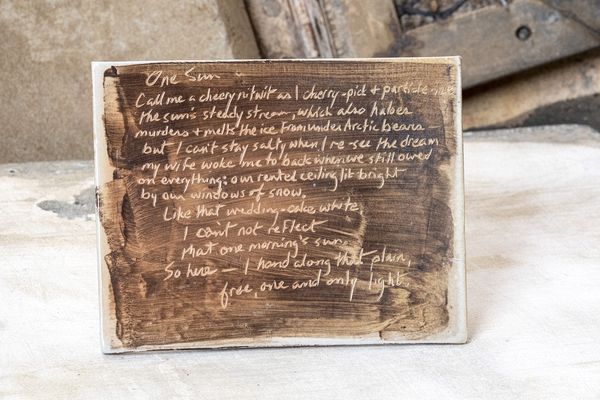 One Sun
Call me a cheery nitwit as I cherry-pick + particle-ize
the sun's steady stream, which also haloes
murders + melts the ice from under Arctic bears
but I can't stay salty when I re-see the dream
my wife woke me to back when we still owed
on everything: our rented ceiling lit bright
by our windows of snow.
Like that wedding-cake white
I can't not reflect
that one morning's sun.
So here — I hand along that plain,
free, one and only light.